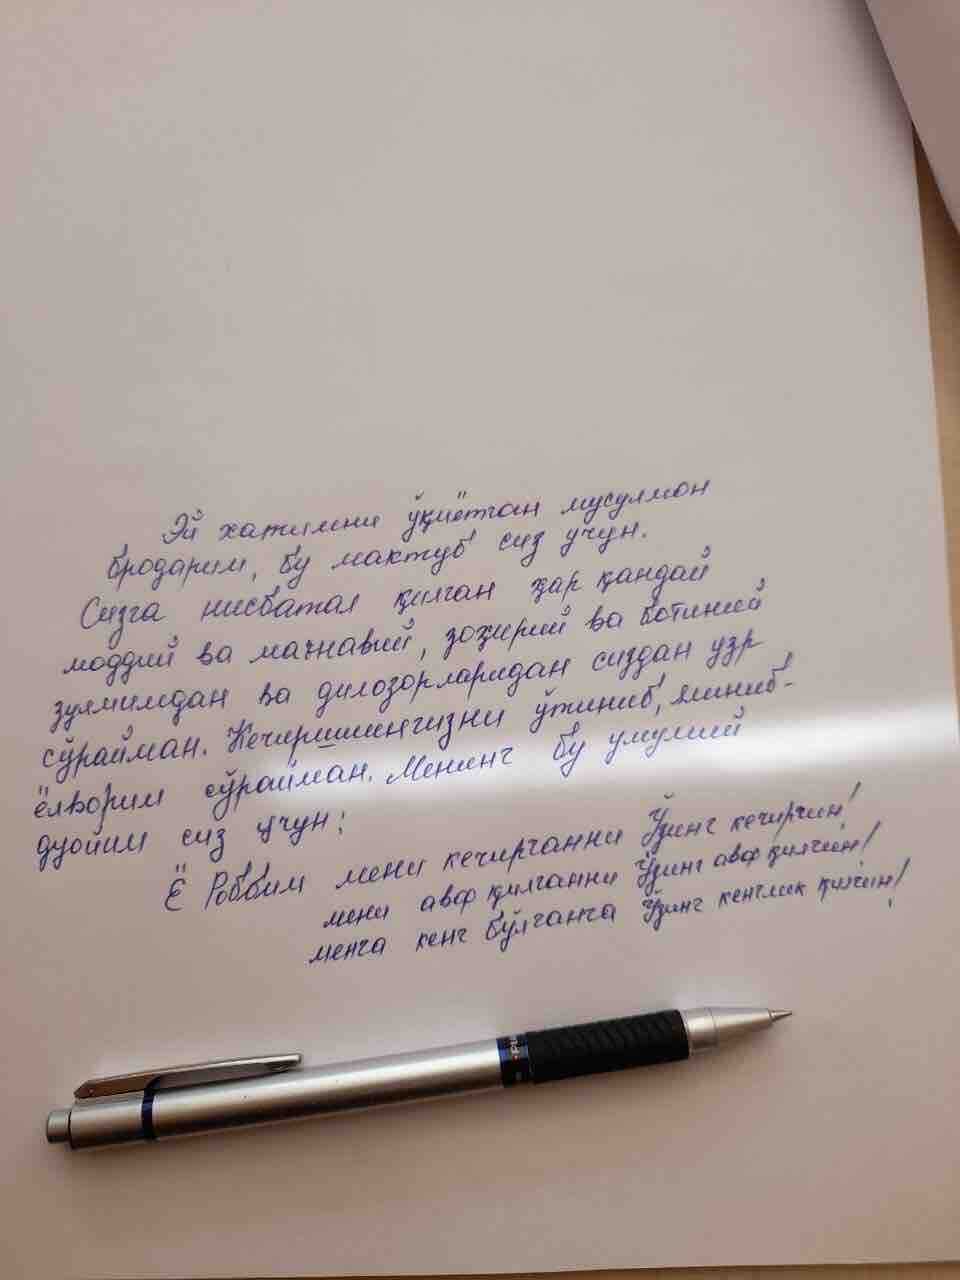 Эй хатимни ўқиётган мусулмон
бродарим, бу мактуб сиз учун.
Сизга нисбатал қилган ҳар қандай
моддий ва маънавий, зоҳирий ва ботиний
зулмимдан ва дилозорларидан сиздан узр
сўрайман. Кечиришингизни ўтиниб, ялиниб-
ёлворим сўрайман. Менинг бу умумий
дуойим сиз учун:
Ё Роббим мени кечирганни Ўзинг кечиргин!
мени авф қилганни Ўзинг авф қилгин!
менга кенг бўлганга Ўзинг кенглик қилгин!